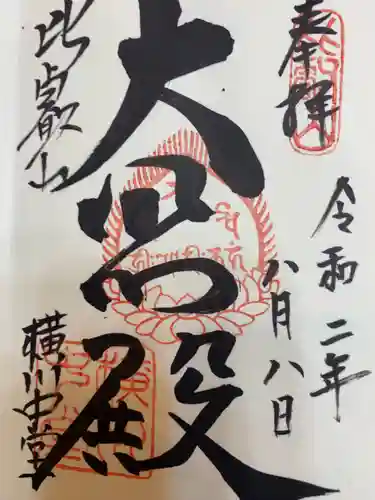 奉拝
令和二年
八月八日
大悲殿
比叡山
横川中堂